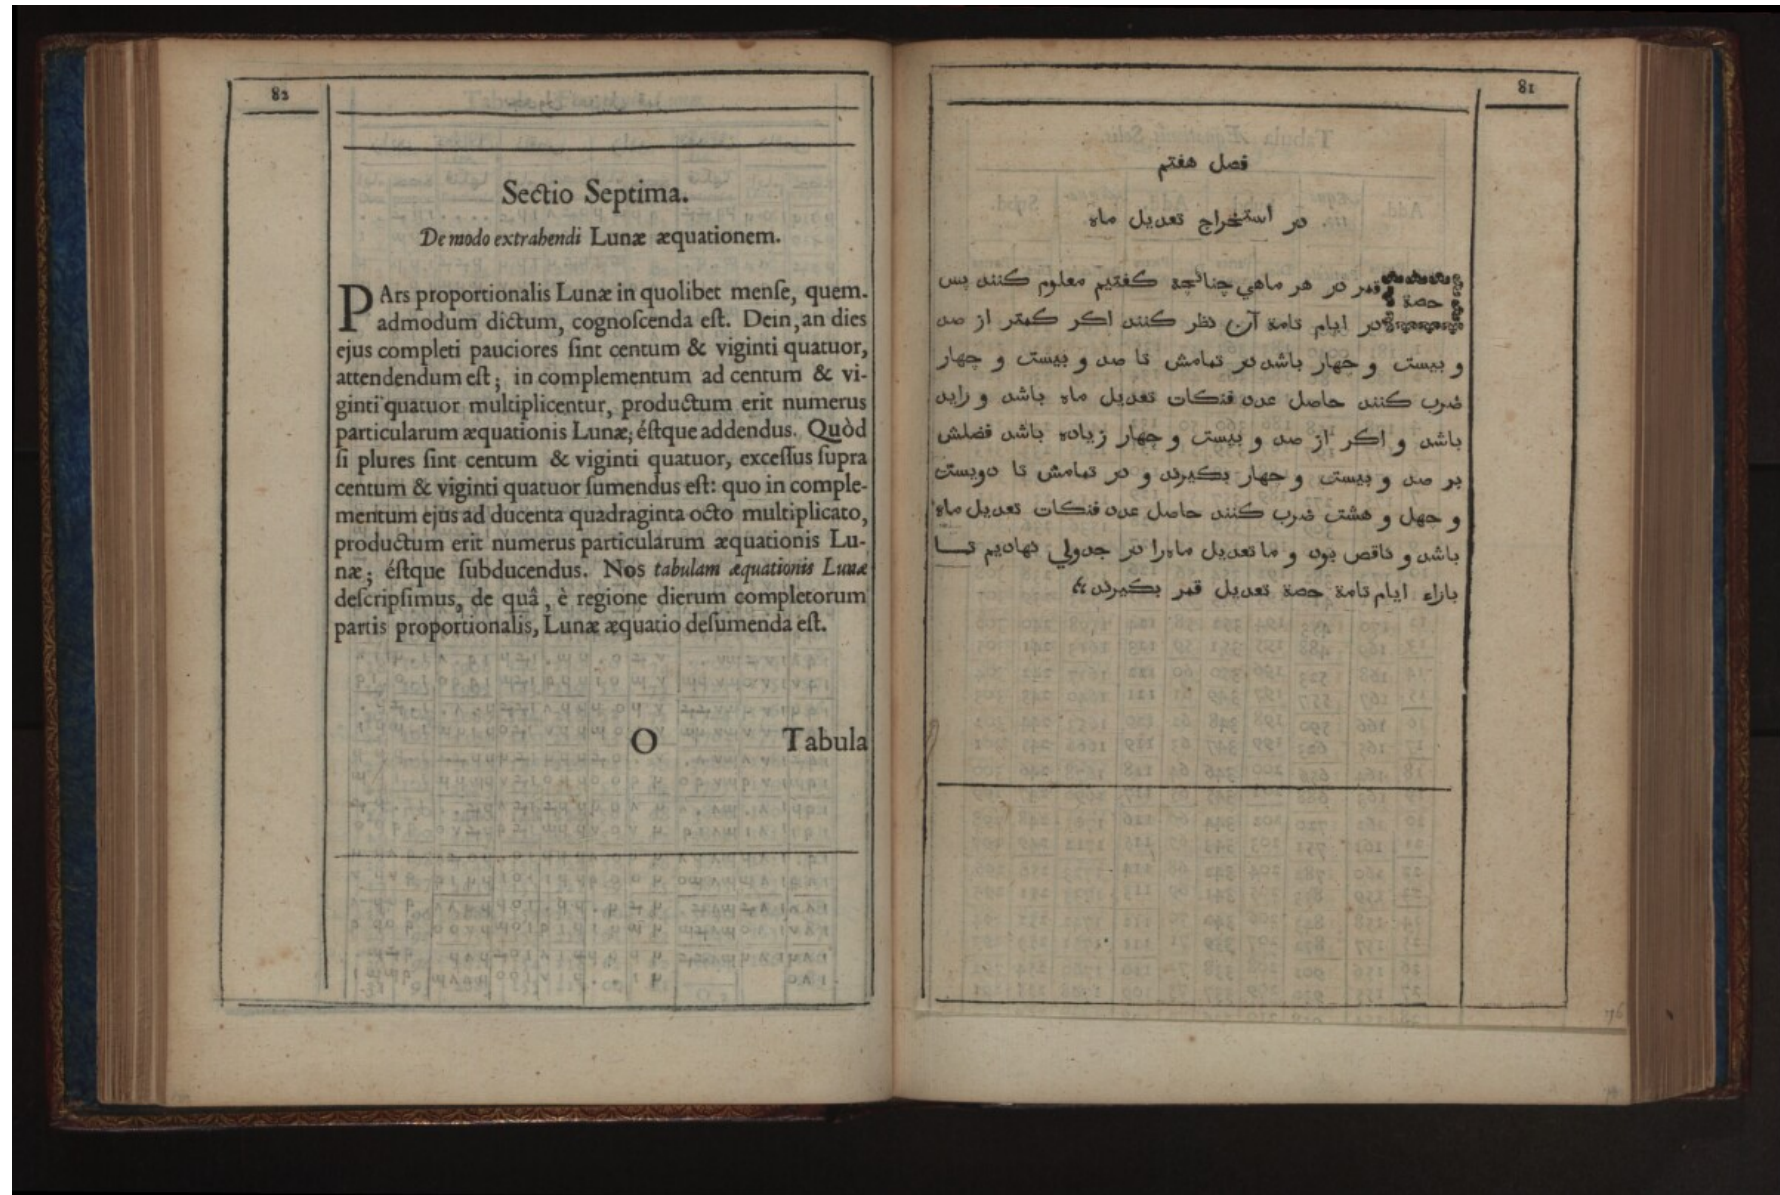 82
Sectio Septima.
De modo extrahendi Lunæ æquationem.
PArs proportionalis Lunæ in quolibet menſe, quem-
admodum dictum, cognoſcenda eſt. Dein, an dies
ejus completi pauciores ſint centum & viginti quatuor,
attendendum eſt; in complementum ad centum & vi-
ginti quatuor multiplicentur, productum erit numerus
particularum æquationis Lunæ; éſtque addendus. Quòd
ſi plures ſint centum & viginti quatuor, exceſſus ſupra
centum & viginti quatuor ſumendus eſt: quo in comple-
mentum ejus ad ducenta quadraginta octo multiplicato,
productum erit numerus particularum æquationis Lu-
næ; éſtque ſubducendus. Nos tabulam æquationis Lunæ
deſcripſimus, de quâ, è regione dierum completorum
partis proportionalis, Lunæ æquatio deſumenda eſt.
O Tabula
81
فصل هفتم
در استخراج تعديل ماه
حصة قمر در هر ماهي چنانچه كفتيم معلوم كنند پس
در ايام تامة آن نظر كنند اكر كمتر از صد
و بيست و چهار باشد در تمامش تا صد و بيست و چهار
ضرب كنند حاصل عدد فنكات تعديل ماه باشد و زايد
باشد و اكر از صد و بيست و چهار زياده باشد فضلش
بر صد و بيست و چهار بكيرند و در تمامش تا دويست
و چهل و هشت ضرب كنند حاصل عدد فنكات تعديل ماه
باشد و ناقص بود و ما تعديل ماه را در جدولي نهاديم تا
بازاء ايام تامة حصة تعديل قمر بكيرند
76